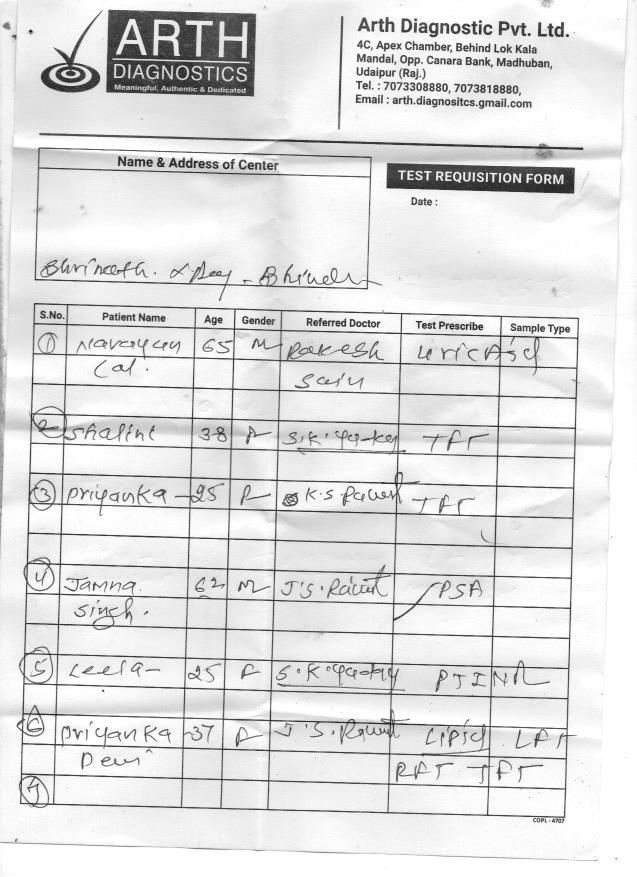 ARTH
DIAGNOSTICS
Meaningful, Authentic & Dedicated
Arth Diagnostic Pvt. Ltd.
4C, Apex Chamber, Behind Lok Kala
Mandal, Opp. Canara Bank, Madhuban,
Udaipur (Raj.)
Tel. : 7073308880, 7073818880,
Email : arth.diagnositcs.gmail.com
Name & Address of Center
TEST REQUISITION FORM
Date :
S.No. Patient Name Age Gender Referred Doctor Test Prescribe Sample Type
1 Narayan 65 M Rakesh Uric Acid
Lal. Sain
2 Shalini 38 F S.K. TFT
3 Priyanka - 25 F K.S. Rawat TFT
4 Jamna 62 M J.S. Rawat PSA
Singh.
5 Leela - 25 F S.K. PTINR
6 Priyanka - 37 F J.S. Rawat Lipid LFT
Devi RFT TFT
7
COPL - 4707